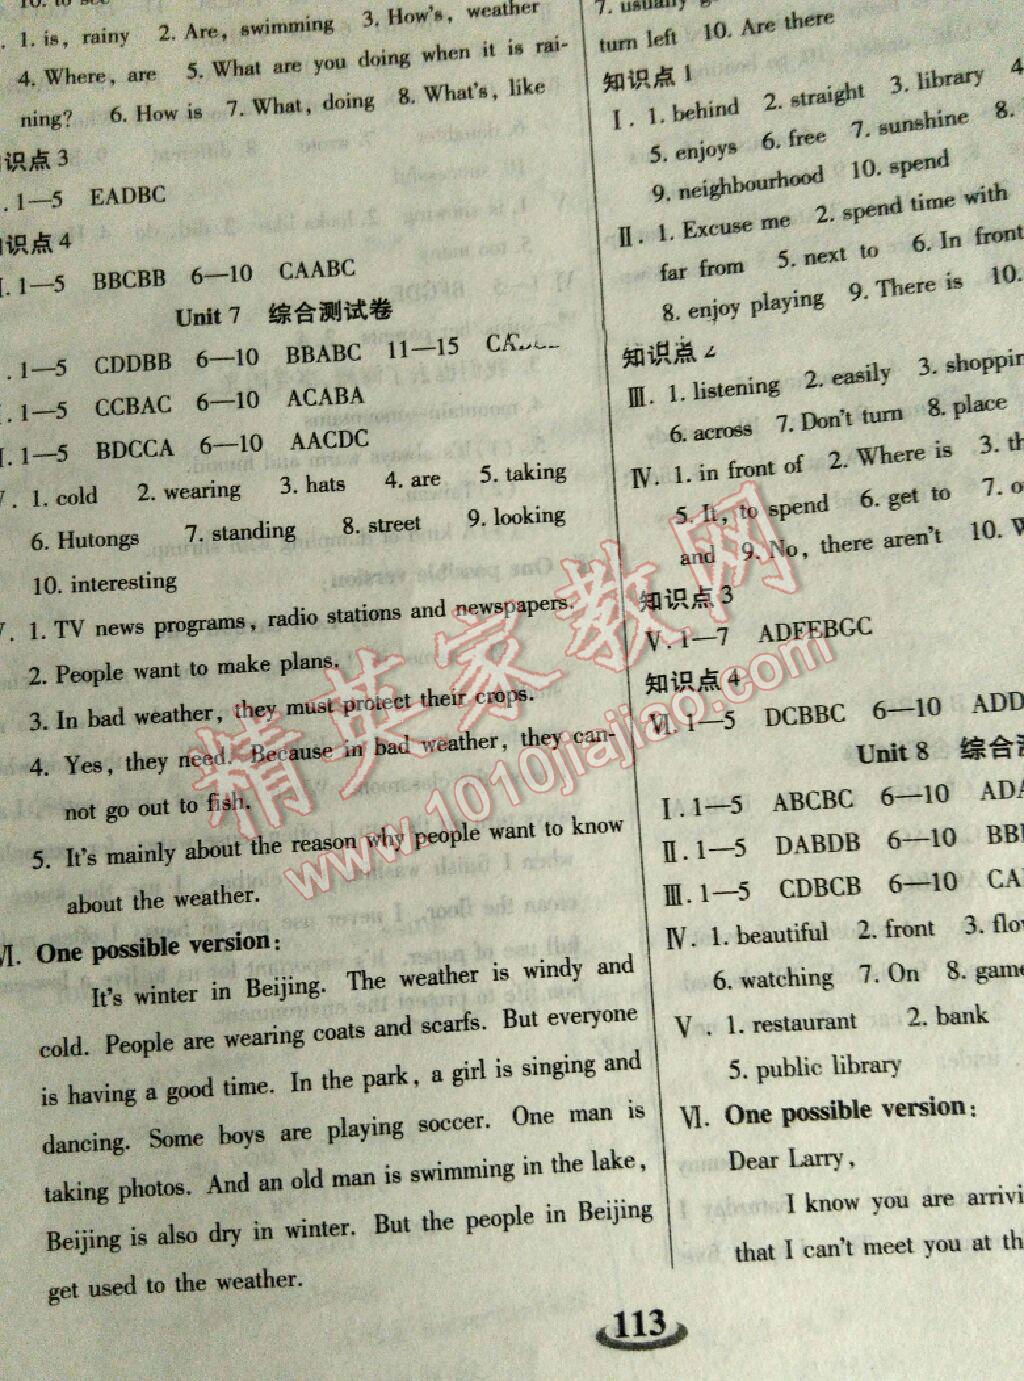 10. to see
1. is, rainy 2. Are, swimming 3. How's, weather
4. Where, are 5. What are you doing when it is rai-
ning? 6. How is 7. What, doing 8. What's, like
识点3
1—5 EADBC
识点4
1—5 BBCBB 6—10 CAABC
Unit 7 综合测试卷
1—5 CDDBB 6—10 BBABC 11—15
1—5 CCBAC 6—10 ACABA
1—5 BDCCA 6—10 AACDC
1. cold 2. wearing 3. hats 4. are 5. taking
6. Hutongs 7. standing 8. street 9. looking
10. interesting
1. TV news programs, radio stations and newspapers.
2. People want to make plans.
3. In bad weather, they must protect their crops.
4. Yes, they need. Because in bad weather, they can-
not go out to fish.
5. It's mainly about the reason why people want to know
about the weather.
Ⅵ. One possible version:
It's winter in Beijing. The weather is windy and
cold. People are wearing coats and scarfs. But everyone
is having a good time. In the park, a girl is singing and
dancing. Some boys are playing soccer. One man is
taking photos. And an old man is swimming in the lake,
Beijing is also dry in winter. But the people in Beijing
get used to the weather.
7. usually
turn left 10. Are there
知识点1
Ⅰ. 1. behind 2. straight 3. library 4
5. enjoys 6. free 7. sunshine 8.
9. neighbourhood 10. spend
Ⅱ. 1. Excuse me 2. spend time with
far from 5. next to 6. In front
8. enjoy playing 9. There is 10.
知识点2
Ⅲ. 1. listening 2. easily 3.
6. across 7. Don't turn 8. place
Ⅳ. 1. in front of 2. Where is 3.
5. It, to spend 6. get to 7.
and 9. No, there aren't 10.
知识点3
Ⅴ. 1—7 ADFEBGC
知识点4
Ⅵ. 1—5 DCBBC 6—10 ADD
Unit 8 综合
Ⅰ. 1—5 ABCBC 6—10 ADA
Ⅱ. 1—5 DABDB 6—10
Ⅲ. 1—5 CDBCB 6—10 CA
Ⅳ. 1. beautiful 2. front 3.
6. watching 7. On 8.
Ⅴ. 1. restaurant 2. bank
5. public library
Ⅵ. One possible version:
Dear Larry,
I know you are
that I can't meet you at
113
精英家教网
www.1010jiajiao.com